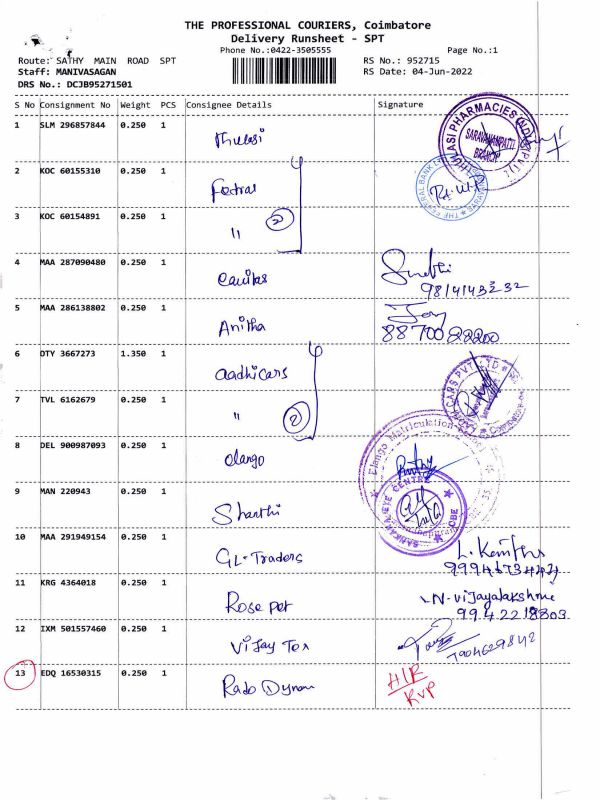 THE PROFESSIONAL COURIERS, Coimbatore
Delivery Runsheet - SPT
Phone No.:0422-3505555
Page No.:1
Route: SATHY MAIN ROAD SPT
RS No.: 952715
Staff: MANIVASAGAN
RS Date: 04-Jun-2022
DRS No.: DCJB95271501
S No Consignment No Weight PCS Consignee Details Signature
1 SLM 296857844 0.250 1 Thulasi
THULASI PHARMACIES
SARAVANAMPATTI
BRANCH
2 KOC 60155310 0.250 1 Fedral
THE FEDERAL BANK
3 KOC 60154891 0.250 1 " 2
4 MAA 287090480 0.250 1 Equitas
5 MAA 286138802 0.250 1 Anitha Joy
88700 22200
6 DTY 3667273 1.350 1 aadhicars
7 TVL 6162679 0.250 1 " 2
8 DEL 900987093 0.250 1 elango
Elango Matriculation
9 MAN 220943 0.250 1 Shanthi
SANKARA EYE CENTRE
10 MAA 291949154 0.250 1 GL-Traders
11 KRG 4364018 0.250 1 Rose pet N-Vijayalakshmi
9942218803
12 IXM 501557460 0.250 1 Vijay Tex
7904629842
13 EDQ 16530315 0.250 1 Rado Dynam